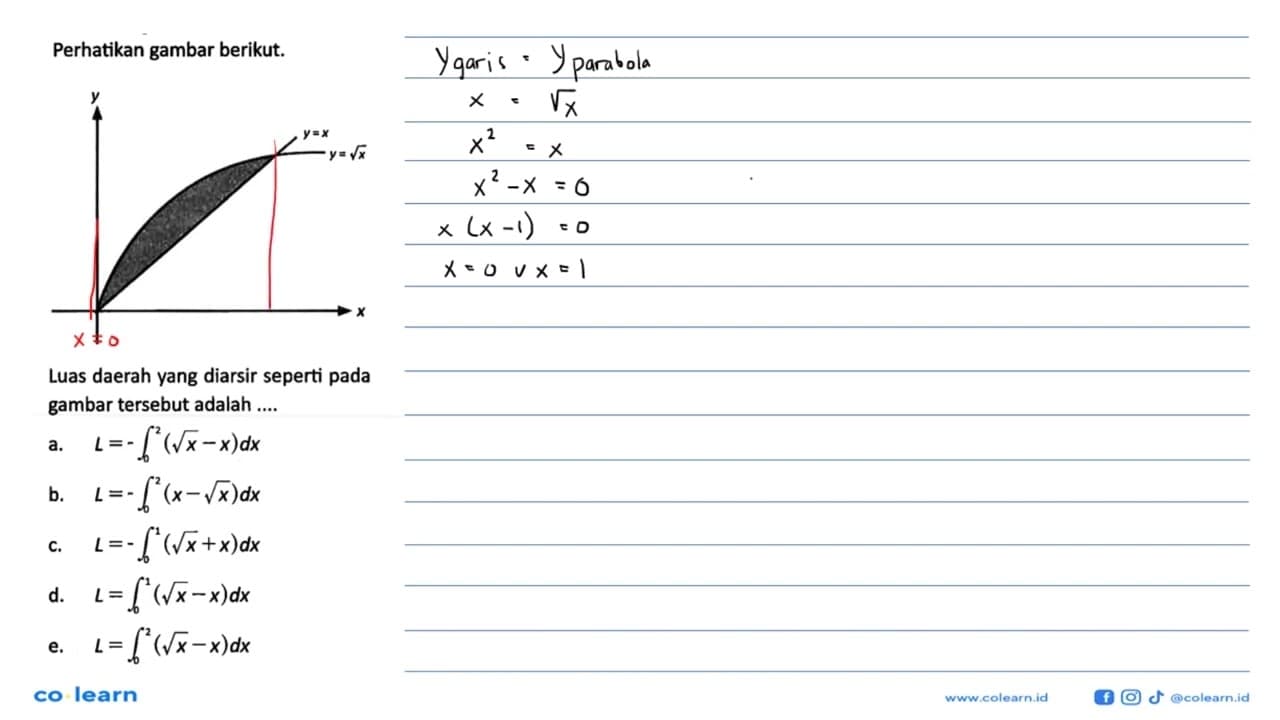 Perhatikan gambar berikut.
y
y = x
y = √x
x
x = 0
Luas daerah yang diarsir seperti pada
gambar tersebut adalah ....
a. L = - ∫₀² (√x − x)dx
b. L = - ∫₀² (x − √x)dx
c. L = - ∫₀¹ (√x + x)dx
d. L = ∫₀¹ (√x − x)dx
e. L = ∫₀² (√x − x)dx
y garis = y parabola
x = √x
x² = x
x² - x = 0
x (x - 1) = 0
x = 0 ∨ x = 1
co learn
www.colearn.id
@colearn.id